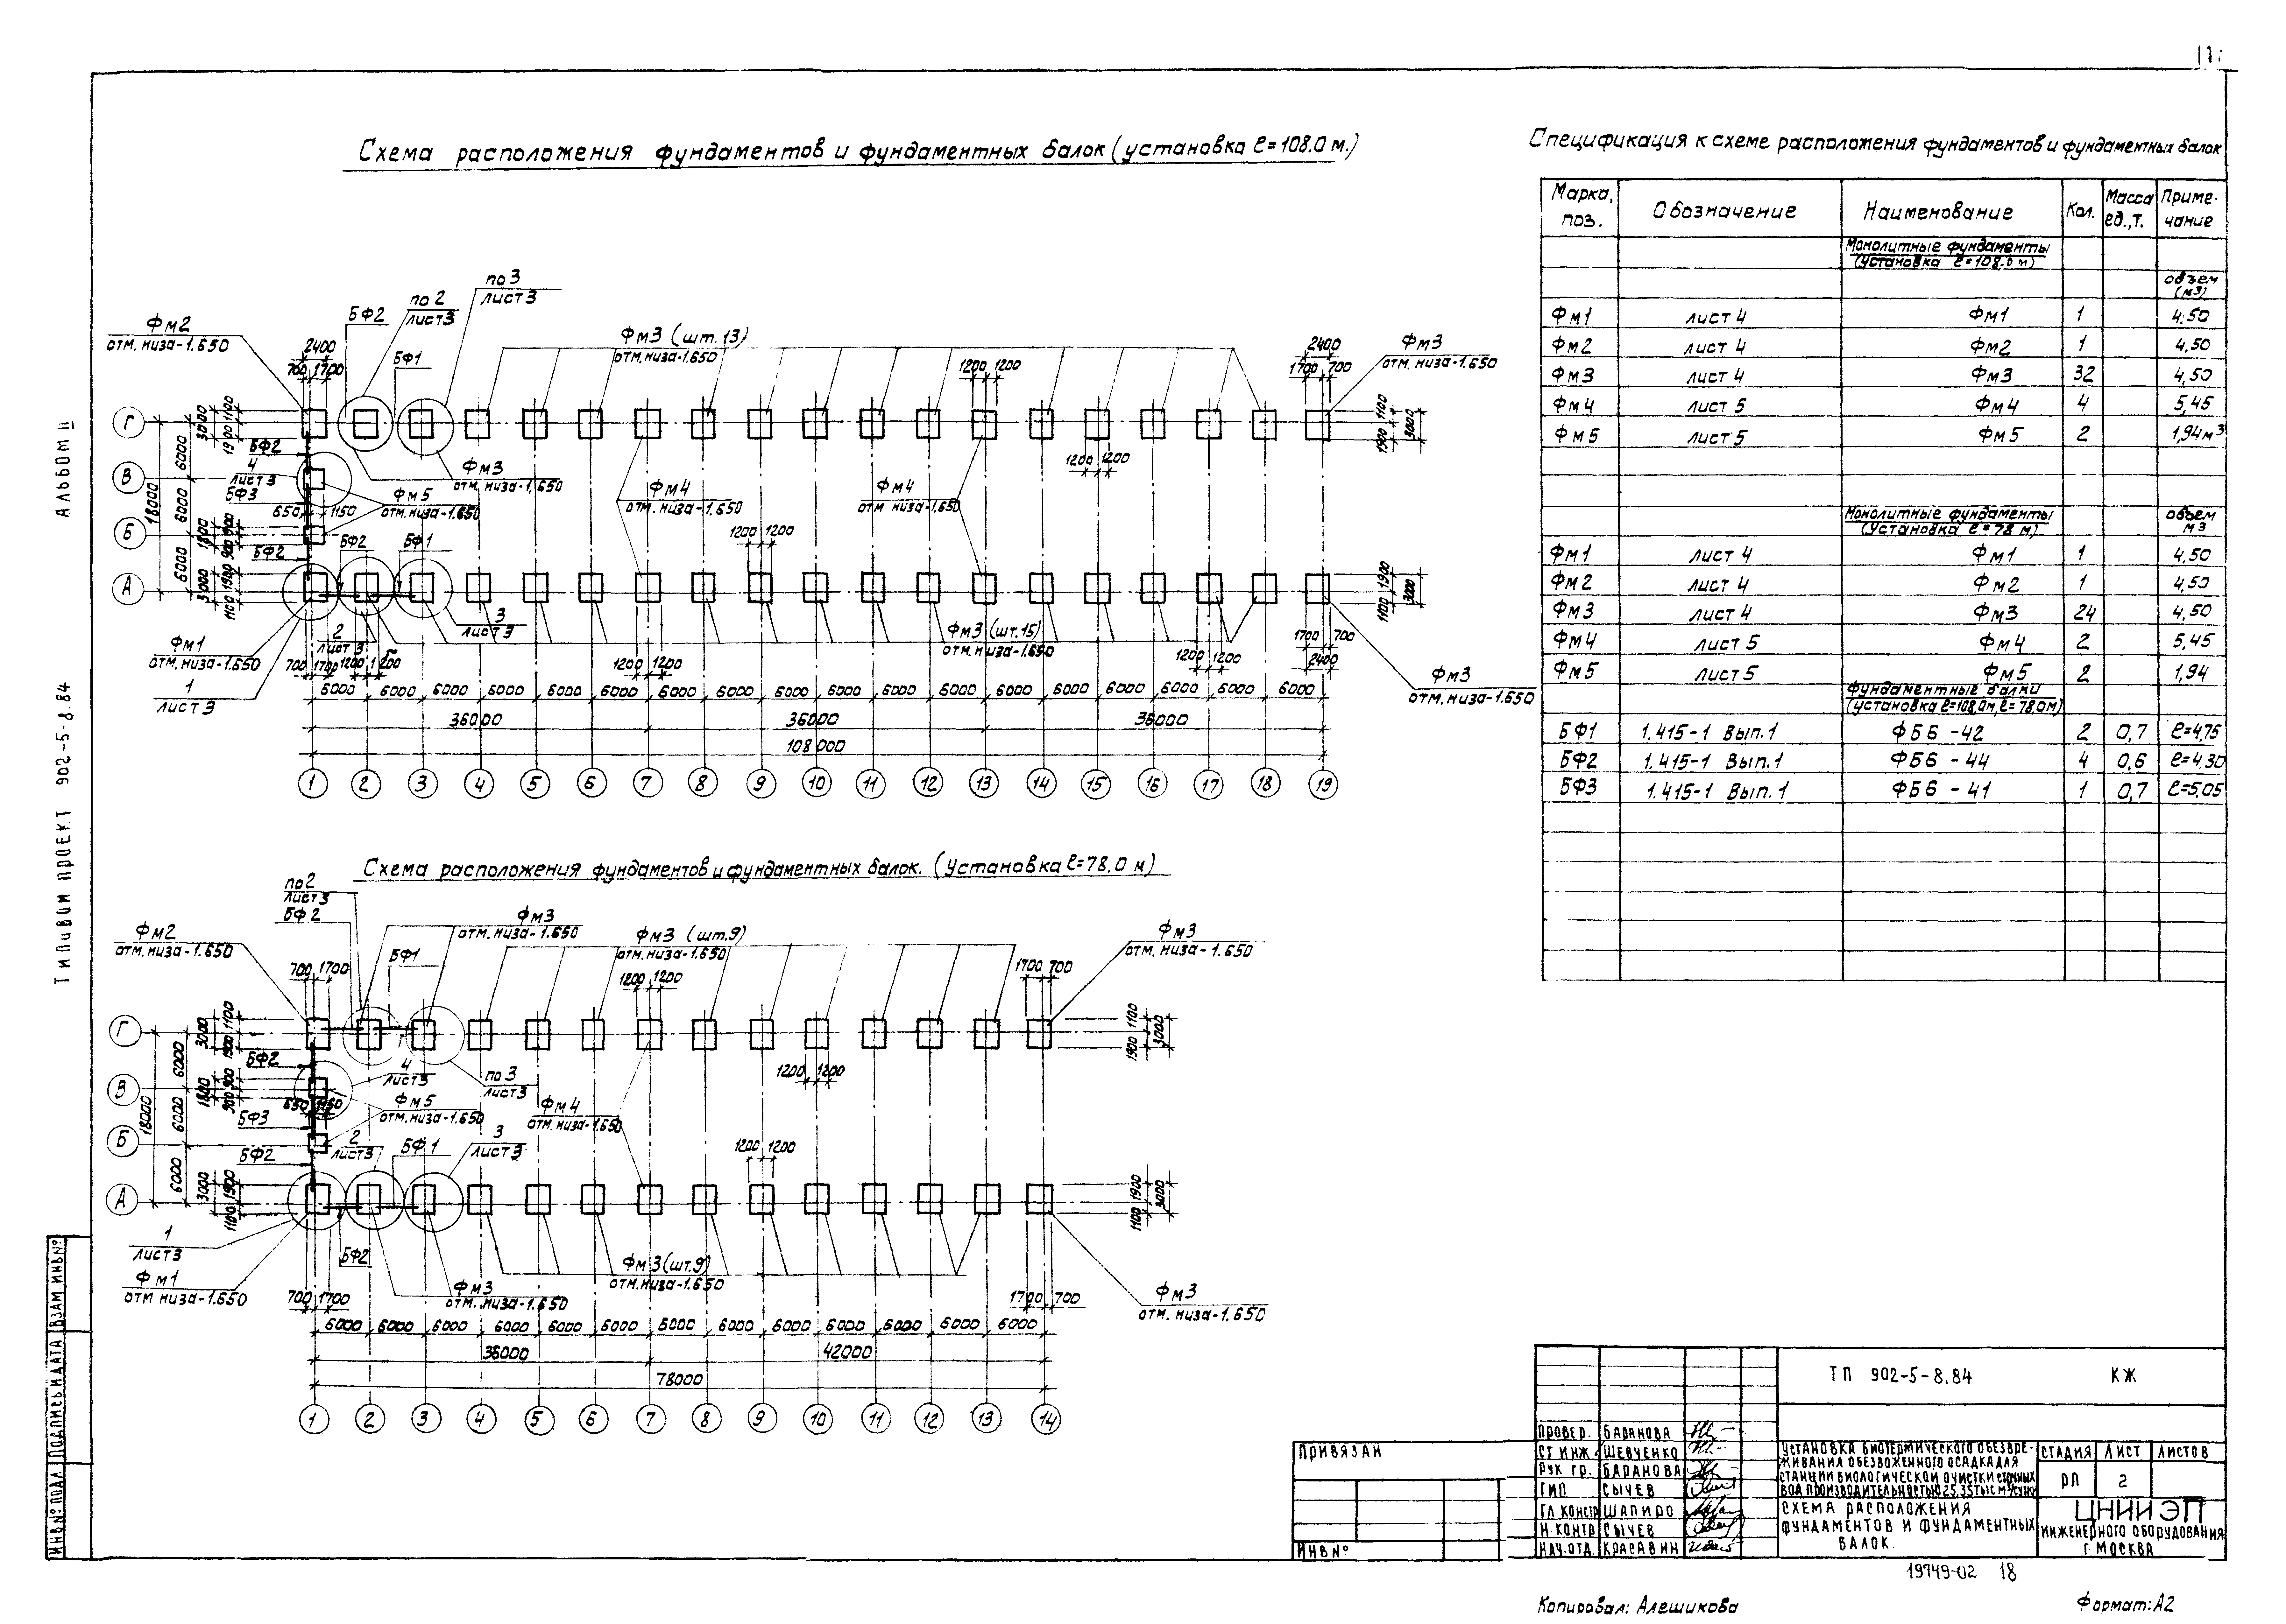 Схема расположения фундаментов и фундаментных балок (установка ℓ=108.0 м.)
Фм2
отм. низа-1.650
БФ2
по 2
лист 3
по 3
лист 3
БФ1
Фм3 (шт. 13)
отм. низа-1.650
Фм3
отм. низа-1.650
2400
700 1700
1200 1200
2400
1700 700
Г
В
Б
А
18000
6000
6000
6000
3000
1100
1900
БФ2
4
лист 3
БФ3
650 1150
Фм5
отм. низа-1.650
Фм3
отм. низа-1,650
Фм4
отм. низа-1.650
Фм4
отм. низа-1.650
1200 1200
1200 1200
1800
900 900
БФ2
БФ2
БФ1
3000
1900
1100
1100
1900
3000
1900
1100
3000
Фм1
отм. низа-1.650
1
лист 3
2
лист 3
3
лист 3
Фм3 (шт. 15)
отм. низа-1.650
Фм3
отм. низа-1.650
700 1700 1200 1200
1200 1200
1200 1200
1700 700
2400
6000 6000 6000 6000 6000 6000 6000 6000 6000 6000 6000 6000 6000 6000 6000 6000 6000 6000
36000 36000 36000
108000
1 2 3 4 5 6 7 8 9 10 11 12 13 14 15 16 17 18 19
Схема расположения фундаментов и фундаментных балок. (Установка ℓ=78.0 м)
по 2
лист 3
БФ2
Фм2
отм. низа-1.650
Фм3
отм. низа-1.650
БФ1
Фм3 (шт.9)
отм. низа-1.650
Фм3
отм. низа-1.650
700 1700
1200 1200
1700 700
Г
В
Б
А
18000
6000
6000
6000
3000
1100
1900
БФ2
1800
900 900
650 1150
БФ3
БФ2
4
лист 3
Фм5
отм. низа-1.650
по 3
лист 3
Фм4
отм. низа-1.650
1200 1200
1200 1200
2
лист 3
БФ1
3
лист 3
3000
1900
1100
1100
1900
3000
1900
1100
3000
1
лист 3
Фм1
отм низа-1.650
БФ2
Фм3
отм. низа-1.650
Фм3 (шт.9)
отм. низа-1.650
Фм3
отм. низа-1.650
700 1700
1700 700
6000 6000 6000 6000 6000 6000 6000 6000 6000 6000 6000 6000 6000
36000 42000
78000
1 2 3 4 5 6 7 8 9 10 11 12 13 14
Спецификация к схеме расположения фундаментов и фундаментных балок
Марка, поз. Обозначение Наименование Кол. Масса ед., т. Примечание
Монолитные фундаменты
(установка ℓ=108.0 м)
объем
(м3)
Фм1 лист 4 Фм1 1 4.50
Фм2 лист 4 Фм2 1 4.50
Фм3 лист 4 Фм3 32 4,50
Фм4 лист 5 Фм4 4 5,45
Фм5 лист 5 Фм5 2 1,94м3
Монолитные фундаменты
(Установка ℓ=78 м)
объем
м3
Фм1 лист 4 Фм1 1 4,50
Фм2 лист 4 Фм2 1 4,50
Фм3 лист 4 Фм3 24 4,50
Фм4 лист 5 Фм4 2 5,45
Фм5 лист 5 Фм5 2 1,94
Фундаментные балки
(установка ℓ=108,0м, ℓ=78.0м)
БФ1 1.415-1 Вып.1 ФБ6-42 2 0,7 ℓ=4,75
БФ2 1.415-1 Вып.1 ФБ6-44 4 0,6 ℓ=4.30
БФ3 1.415-1 Вып.1 ФБ6-41 1 0,7 ℓ=5,05
Типивим проект 902-5-8.84
Альбом II
Инв№ подл Подпись и дата Взам. инв№
Привязан
Инв№
ТП 902-5-8.84 КЖ
Провер. Баранова
Ст инж. Шевченко
Рук гр. Баранова
ГИП Сычев
Гл констр Шапиро
Н. контр Сычев
Нач. отд. Красавин
Установка биотермического обезвре-
живания обезвоженного осадка для
станции биологической очистки сточных
вод производительностью 25,35 тыс м3/сутки
Стадия Лист Листов
РП 2
Схема расположения
фундаментов и фундаментных
балок.
ЦНИИЭП
инженерного оборудования
г. Москва
19749-02 18
Копировал: Алешикова
Формат: А2